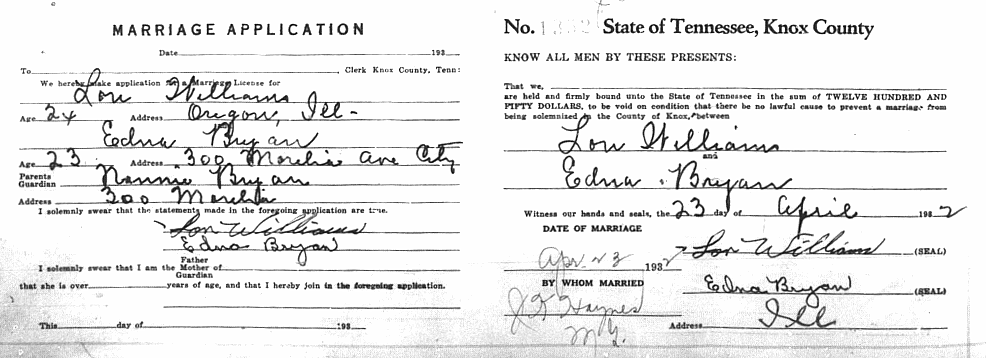 MARRIAGE APPLICATION
Date 193
To , Clerk Knox County, Tenn:
We hereby make application for a Marriage License for
Lon Williams
Age 24 Address Oregon, Ill-
Edna Bryan
Age 23 Address 300 Morelia Ave City
Parents
Guardian Nannie Bryan
Address 300 Morelia
I solemnly swear that the statements made in the foregoing application are true.
Lon Williams
Edna Bryan
Father
I solemnly swear that I am the Mother of
Guardian
that she is over years of age, and that I hereby join in the foregoing application.
This day of 193
No. 1352 State of Tennessee, Knox County
KNOW ALL MEN BY THESE PRESENTS:
That we,
are held and firmly bound unto the State of Tennessee in the sum of TWELVE HUNDRED AND
FIFTY DOLLARS, to be void on condition that there be no lawful cause to prevent a marriage from
being solemnized in the County of Knox, between
Lon Williams
and
Edna Bryan
Witness our hands and seals, the 23 day of April 1932
DATE OF MARRIAGE
Apr 23 1932
Lon Williams (SEAL)
BY WHOM MARRIED
Edna Bryan (SEAL)
Haynes
Address Ill